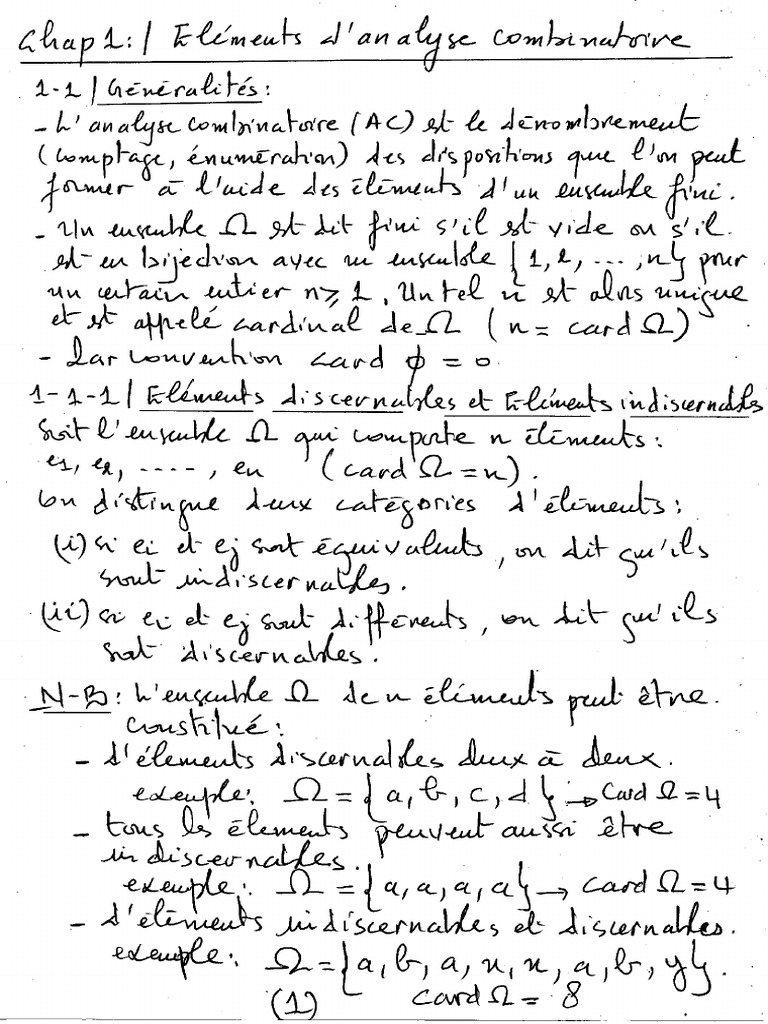 Chap1:/ Eléments d'analyse combinatoire
1-1/ Généralités:
- L'analyse combinatoire (AC) est le dénombrement
(comptage, énumération) des dispositions que l'on peut
former à l'aide des éléments d'un ensemble fini.
- Un ensemble Ω est dit fini s'il est vide ou s'il
est en bijection avec un ensemble {1, 2, ..., n} pour
un certain entier n ≥ 1. Un tel n est alors unique
et est appelé cardinal de Ω (n = card Ω)
- Par convention card ϕ = 0
1-1-1/ Eléments discernables et Eléments indiscernables
Soit l'ensemble Ω qui comporte n éléments:
e1, e2, ----, en (card Ω = n).
On distingue deux catégories d'éléments:
(i) si ei et ej sont équivalents, on dit qu'ils
sont indiscernables.
(ii) si ei et ej sont différents, on dit qu'ils
sont discernables.
N-B: L'ensemble Ω de n éléments peut être
constitué:
- d'élements discernables deux à deux.
exemple: Ω = {a, b, c, d} → Card Ω = 4
- tous les élements peuvent aussi être
indiscernables.
exemple: Ω = {a, a, a, a} → Card Ω = 4
- d'éléments indiscernables et discernables.
exemple: Ω = {a, b, a, x, x, a, b, y}.
(1) Card Ω = 8